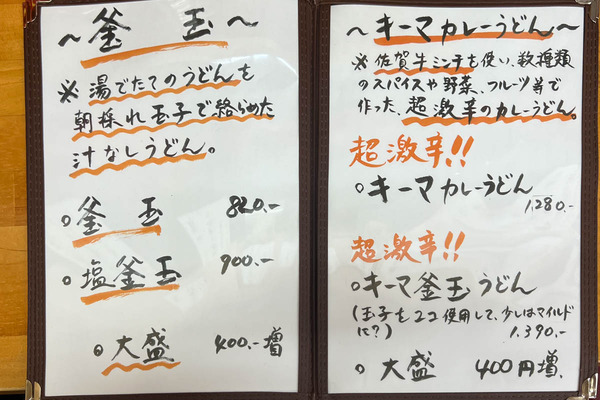 ～釜 玉～
※湯でたてのうどんを
朝採れ玉子で絡らめた
汁なしうどん。
○釜 玉 820.-
○塩釜玉 900.-
○大盛 400.-増
～キーマカレーうどん～
※佐賀牛ミンチを使い、数種類
のスパイスや野菜、フルーツ等で
作った、超激辛のカレーうどん。
超激辛!!
○キーマカレーうどん
1,280.-
超激辛!!
○キーマ釜玉うどん
(玉子を2コ使用して、少しはマイルド
に?) 1,390.-
○大盛 400円増.